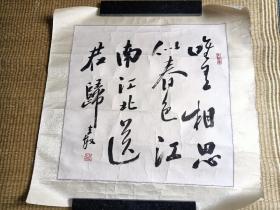 唯有相思
似春色江
南江北送
君歸